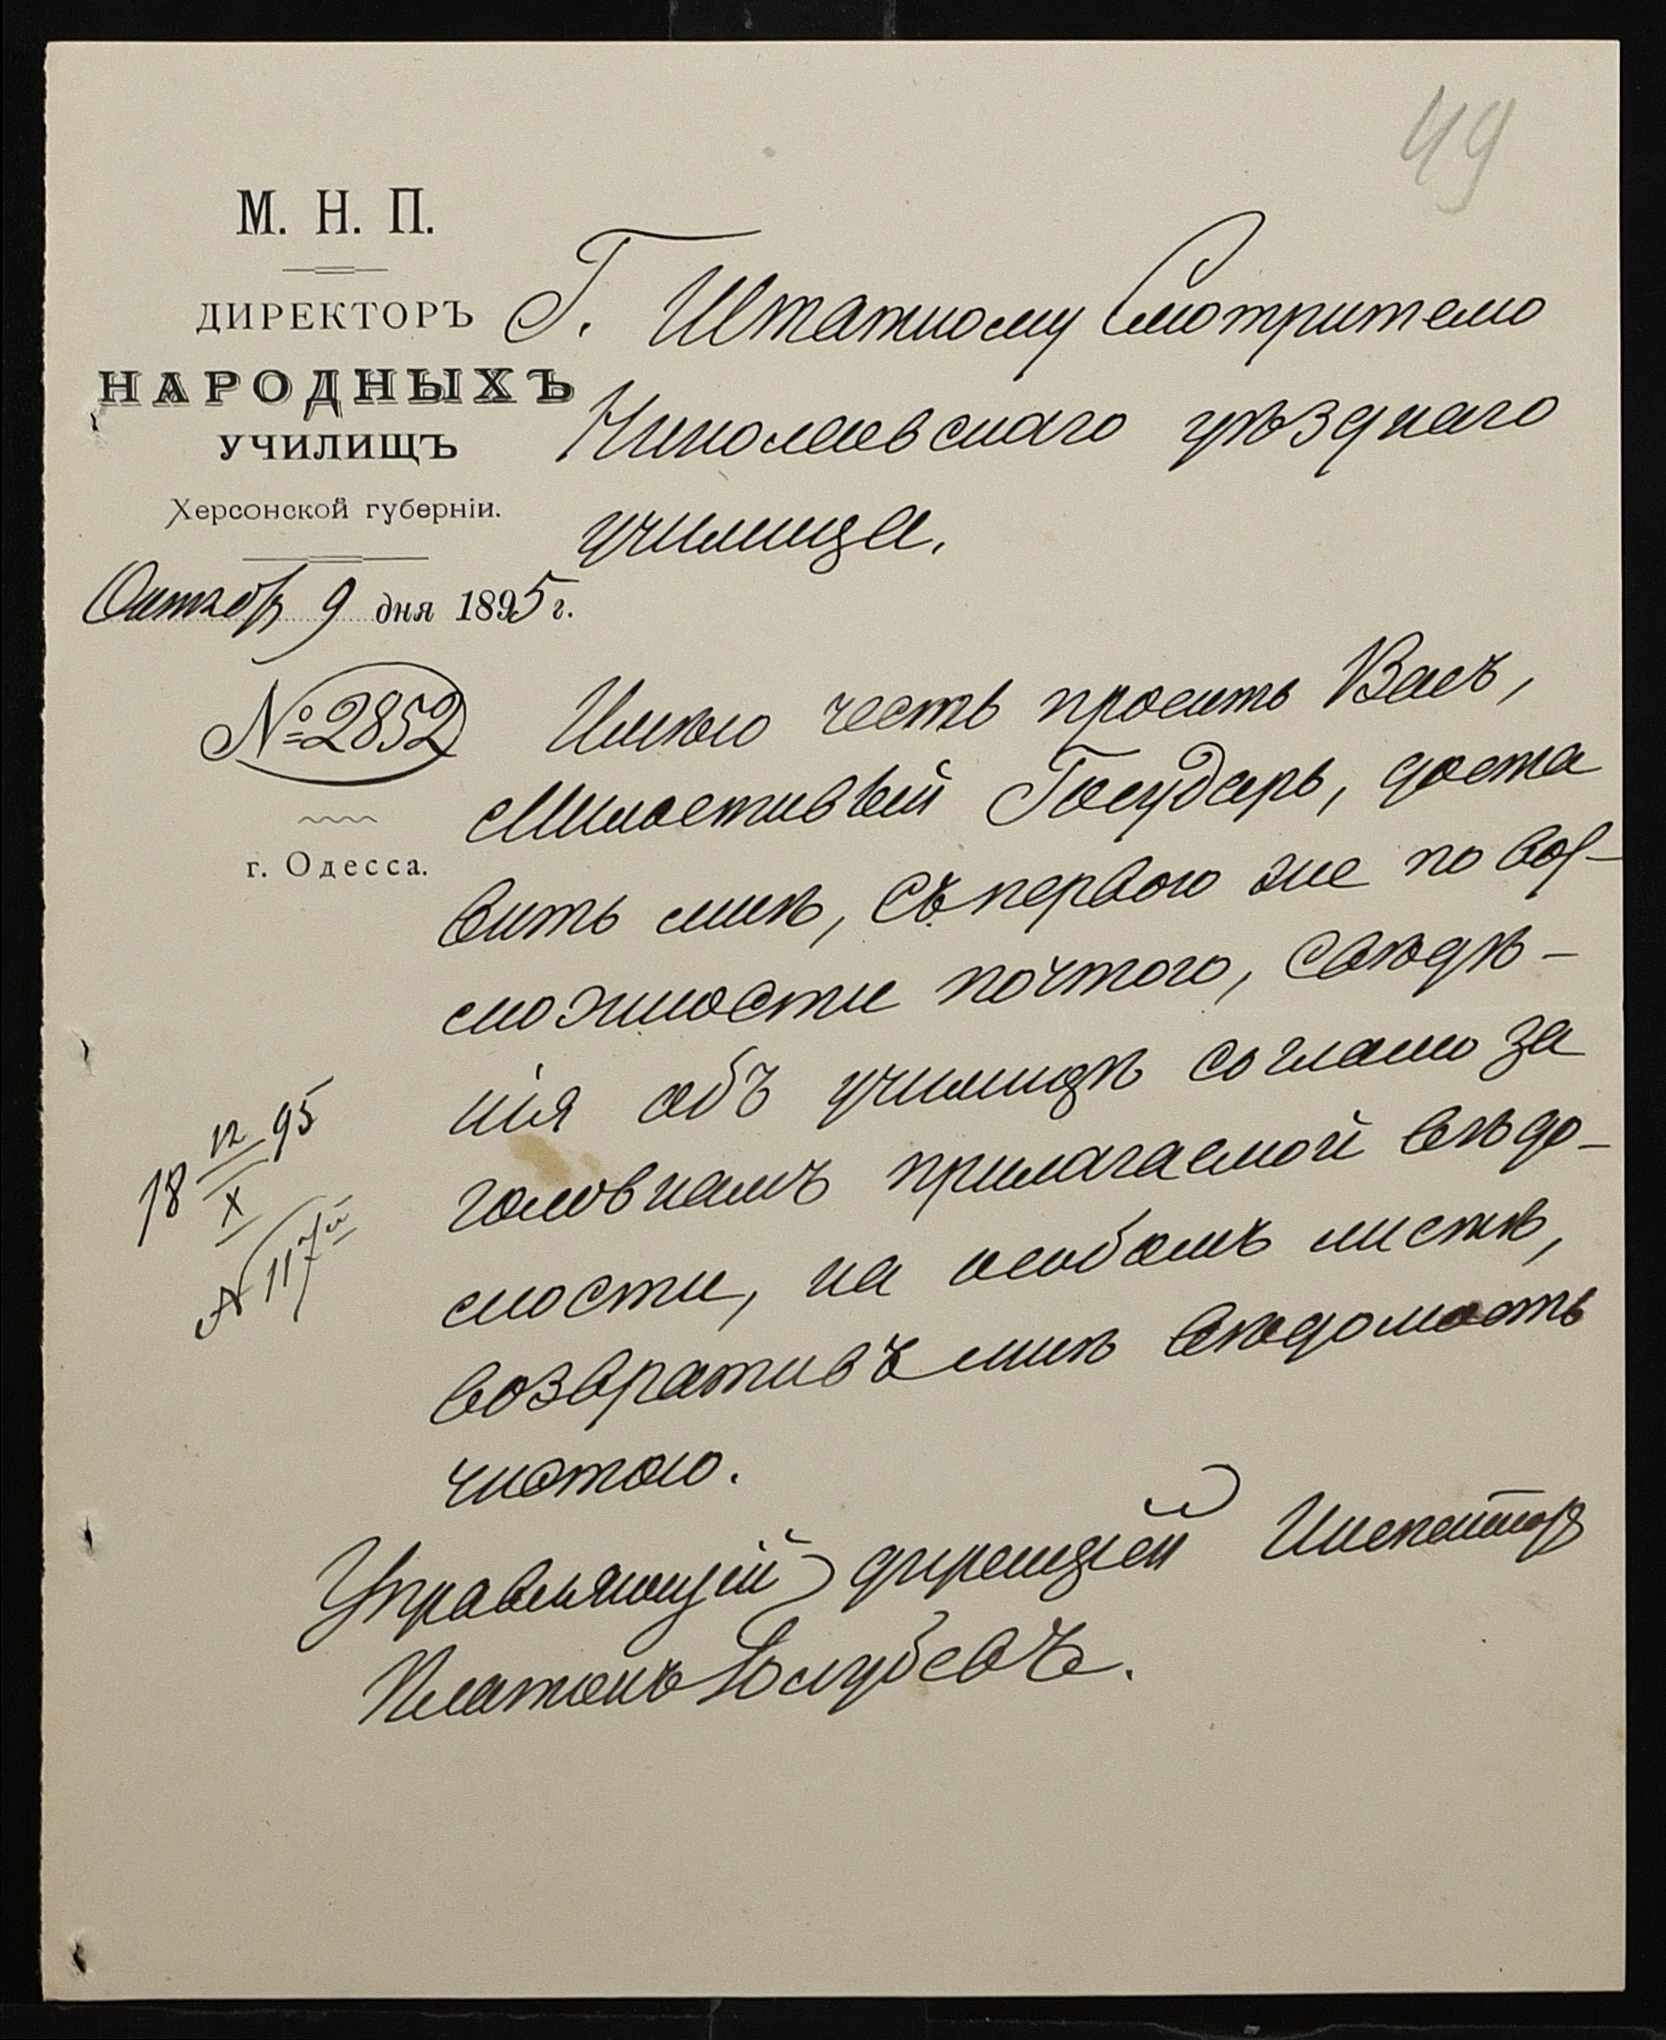 49
М. Н. П.
ДИРЕКТОРЪ
НАРОДНЫХЪ
УЧИЛИЩЪ
Херсонской губерніи.
Октябр 9 дня 1895 г.
№ 2852
г. Одесса.
18 12/X 95
№ 117й
Г. Штатному Смотрителю
Николаевскаго уѣзднаго
училища.
Имѣю честь просить Васъ,
Милостивый Государь, доста
вить мнѣ, съ первою же по воз-
можности почтою, свѣдѣ-
нія объ училищѣ согласно за
головкамъ прилагаемой вѣдо-
мости, на особомъ листѣ,
возвративъ мнѣ вѣдомость
чистою.
Управляющій дирекціей Инспекторъ
Платонъ